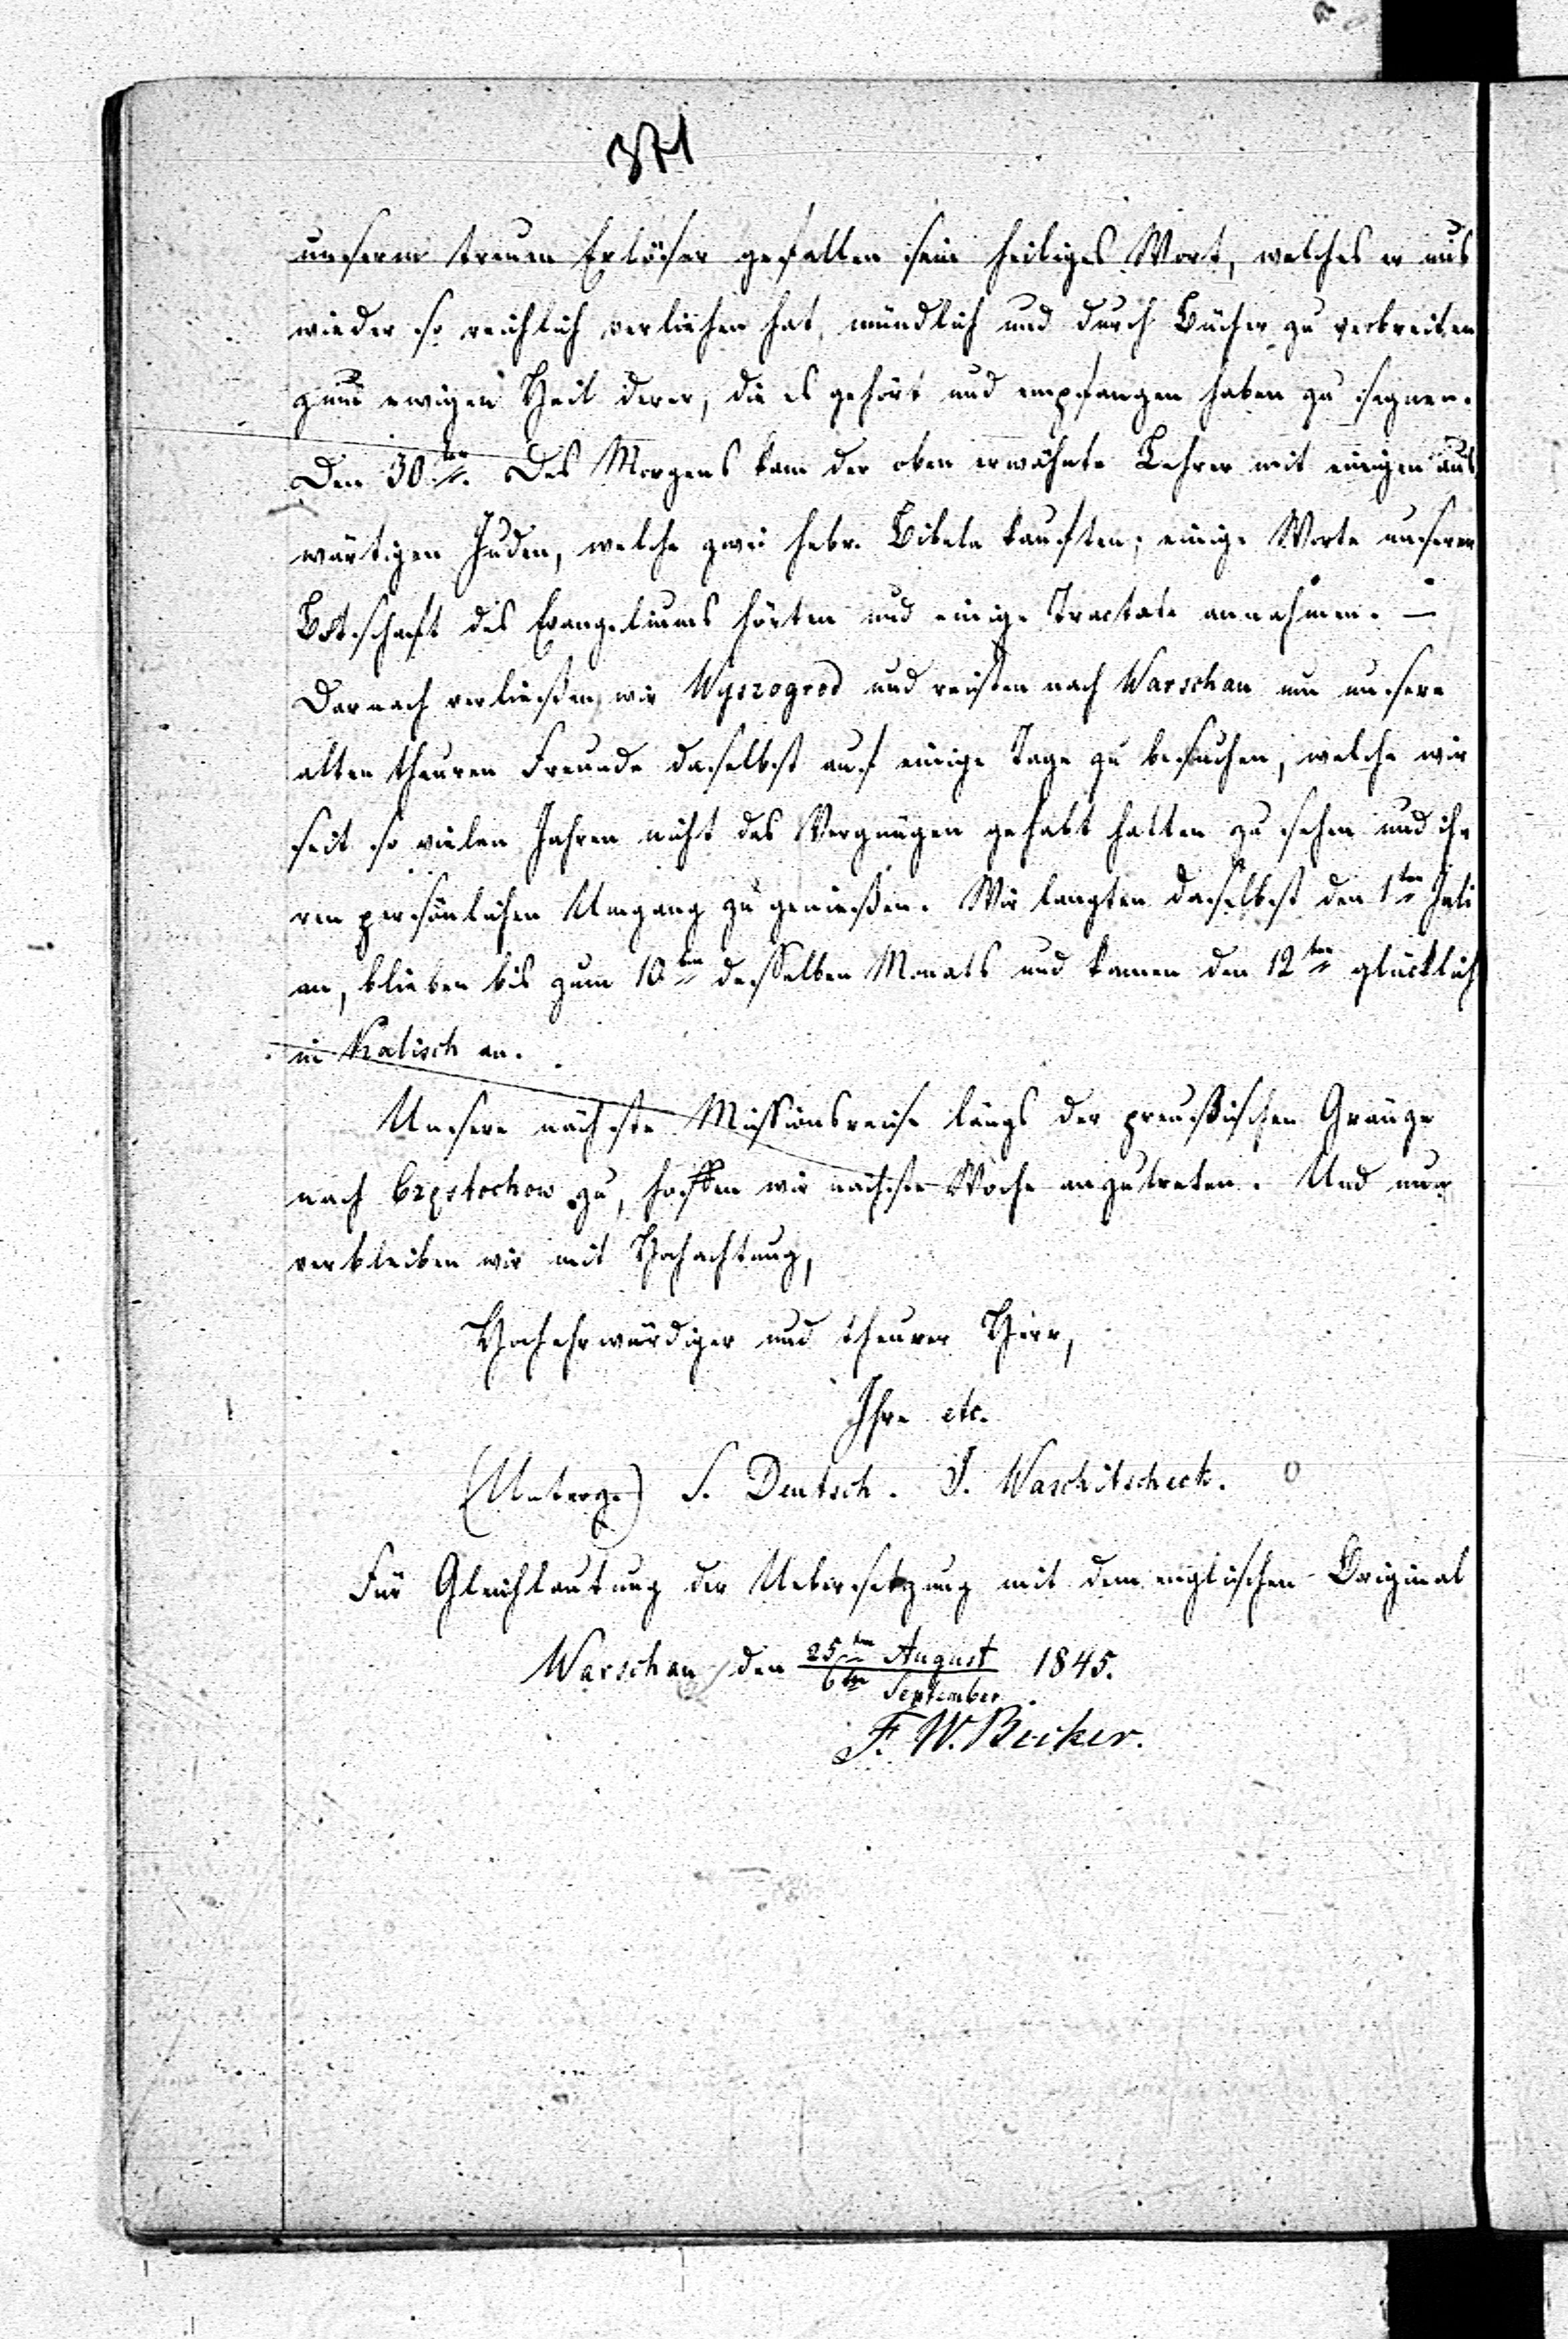 371
unserm treuen Erlöser gefallen sein heiliges Wort, welches er uns
wieder so reichlich verliehen hat, mündlich und durch Bücher zu verbreiten
zum ewigen Heil derer, die es gehört und empfangen haben zu segnen.
Den 30ten. Des Morgens kam der oben erwähnte Lehrer mit einigen aus
wärtigen Juden, welche zwei hebr. Bibeln kauften; einige Worte unserer
Botschaft des Evangeliums hörten und einige Tractate annahmen. —
Darnach verließen wir Wyszogrod und reisten nach Warschau um unsere
alten theuren Freunde daselbst auf einige Tage zu besuchen, welche wir
seit so vielen Jahren nicht das Vergnügen gehabt hatten zu sehen und ih
ren persönlichen Umgang zu genießen. Wir langten daselbst den 1ten Juli
an, blieben bis zum 10ten desselben Monats und kamen den 12ten glücklich
in Kalisch an.
Unsere nächste Missionsreise längs der preußischen Gränze
nach Czestochow zu, hoffen wir nächste Woche anzutreten. Und nun
verbleiben wir mit Hochachtung,
Hochehrwürdiger und theurer Herr,
Ihre etc.
(Unterz.) S. Deutsch. J. Waschitscheck.
Für Gleichlautung der Uebersetzung mit dem englischen Original
Warschau, den 25ten August 1845.
6ten September
F. W. Becker.